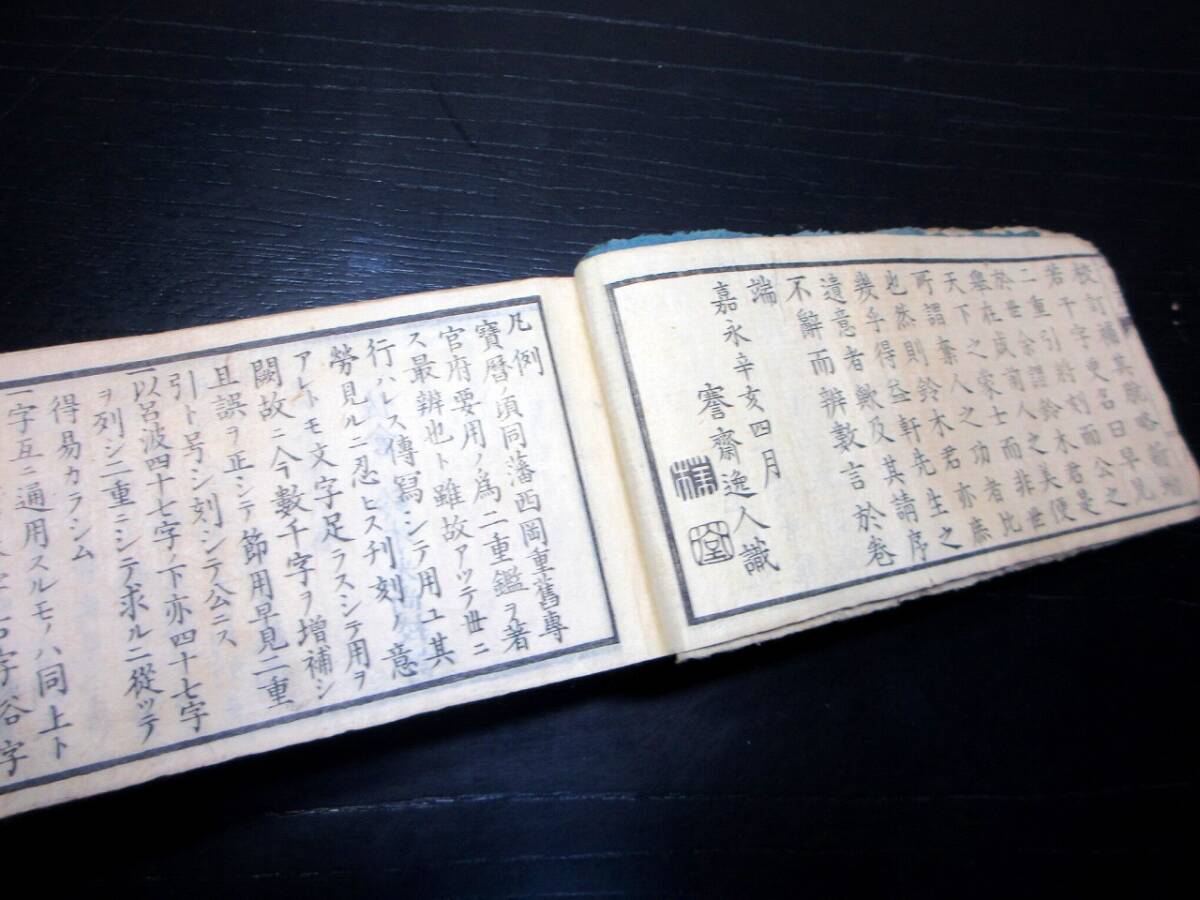 校訂補其脱略
若干字更名曰早見
二重引将刻而公之
於世余謂鈴木君是
擧在前人之美便
天下之宋士而非世
所謂棄人之功者比
也然則鈴木君亦庶
幾乎得益軒先生之
遺意者歟及其請序
不辭而辨數言於卷
端
嘉永辛亥四月
謇齋逸人識
凡例
寶暦ノ頃同藩西岡重舊專
官府要用ノ爲二重鑑ヲ著
ス最辨也ト雖故アツテ世ニ
行ハレス傳寫シテ用ユ其
勞見ルニ忍ヒス刊刻ノ意
アレトモ文字足ラスシテ用ヲ
闕故ニ今數千字ヲ増補シ
且誤ヲ正シテ節用早見二重
引ト号シ刻シテ公ニス
一以呂波四十七字ノ下亦四十七字
ヲ列シ二重ニシテ求ルニ從ツテ
得易カラシム
一字互ニ通用スルモノハ同上ト
谷字